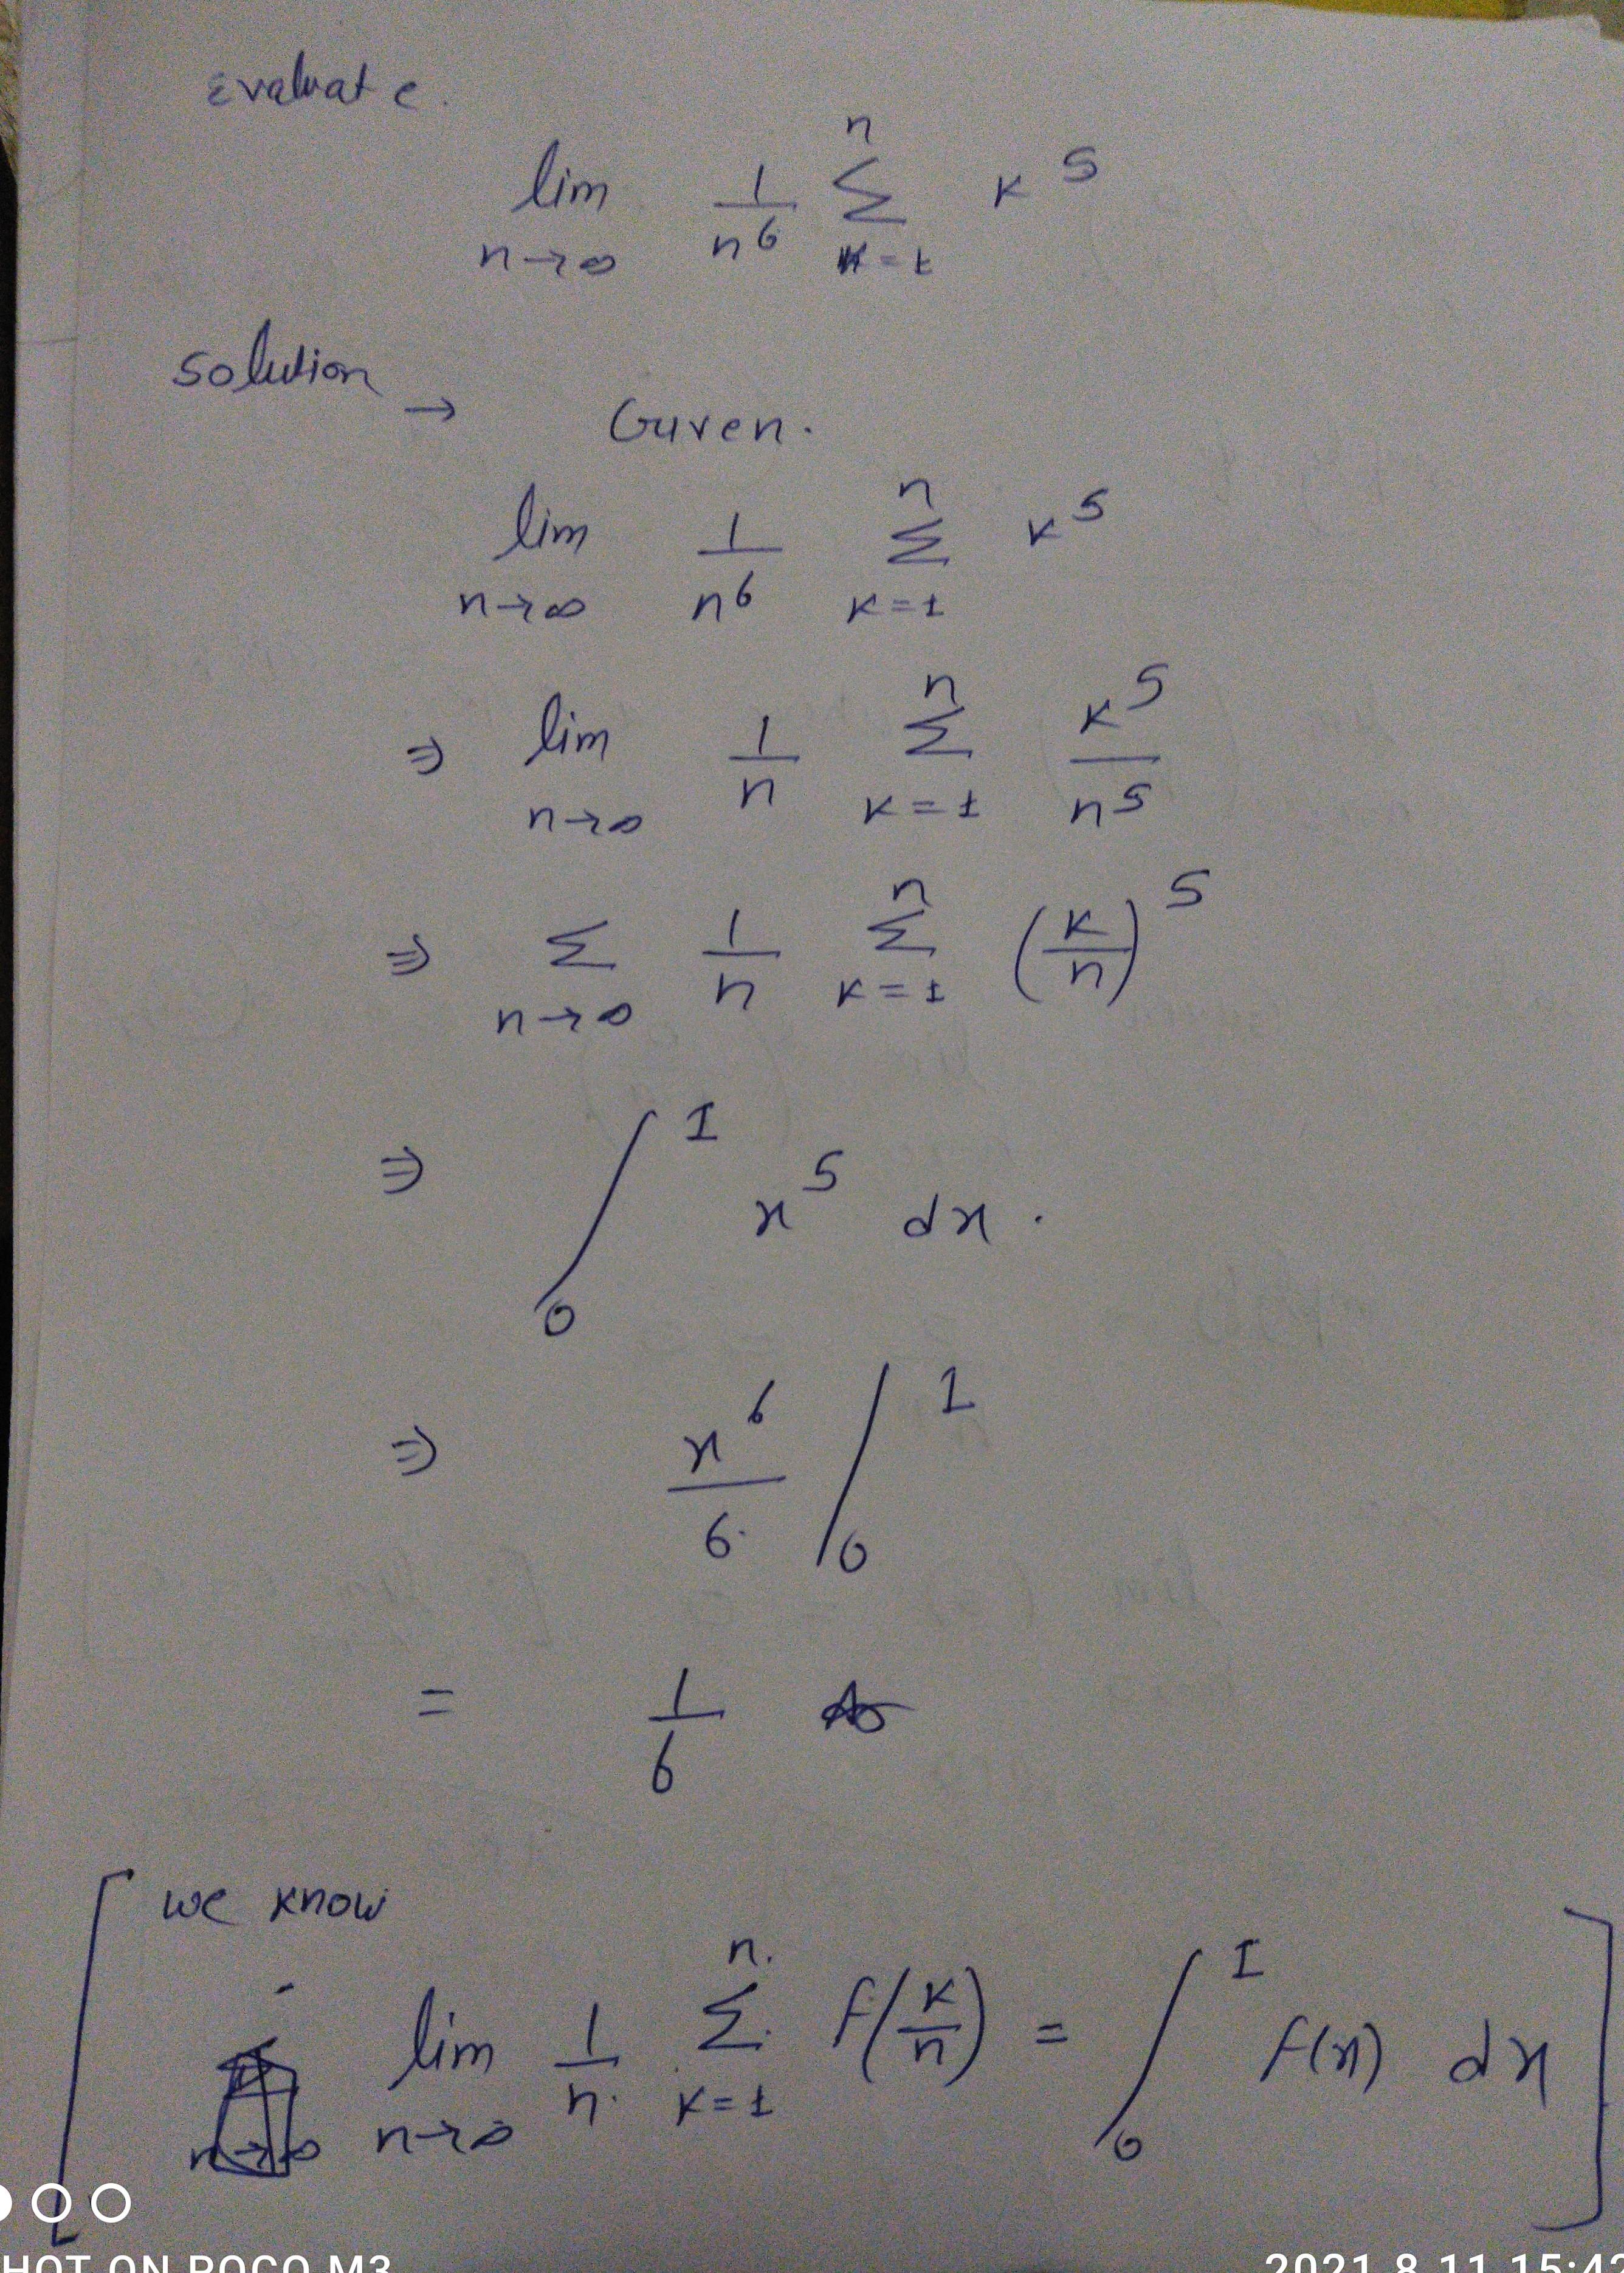 Evaluate.
lim n→∞ 1/n^6 n Σ k=1 k^5
Solution → Given.
lim n→∞ 1/n^6 n Σ k=1 k^5
⇒ lim n→∞ 1/n n Σ k=1 k^5/n^5
⇒ Σ n→∞ 1/n n Σ k=1 (k/n)^5
⇒ ∫_0^1 x^5 dx.
⇒ x^6/6. |_0^1
= 1/6
[ we know
lim n→∞ 1/n. n. Σ k=1 f(k/n) = ∫_0^1 f(x) dx ]
SHOT ON POCO M3
2021.8.11 15:42